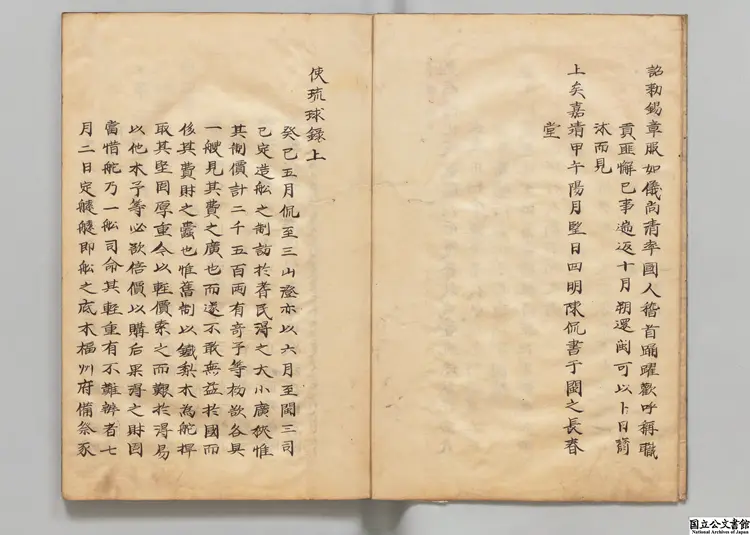 詔勅錫章服如儀尚清率國人稽首踊躍歡呼稱職
貢匪懈已事遄返十月朔還閩可以卜日齋
沐而見
上矣嘉靖甲午陽月望日四明陳侃書于閩之長春
堂
使琉球錄上
癸巳五月侃至三山澄亦以六月至閩三司
已定造舩之制訪於耆民得之大小廣狹惟
其制價計二千五百兩有奇予等初欲各具
一艘見其費之廣也而遂不敢無益於國而
侈其費財之蠹也惟舊制以鐵梨木為舵桿
取其堅固厚重今以輕價索之而艱於得易
以他木予等必欲倍價以購后果得之財固
當惜舵乃一舩司命其輕重有不難辨者七
月二日定䑽䑽即舩之底木福州府備祭豕